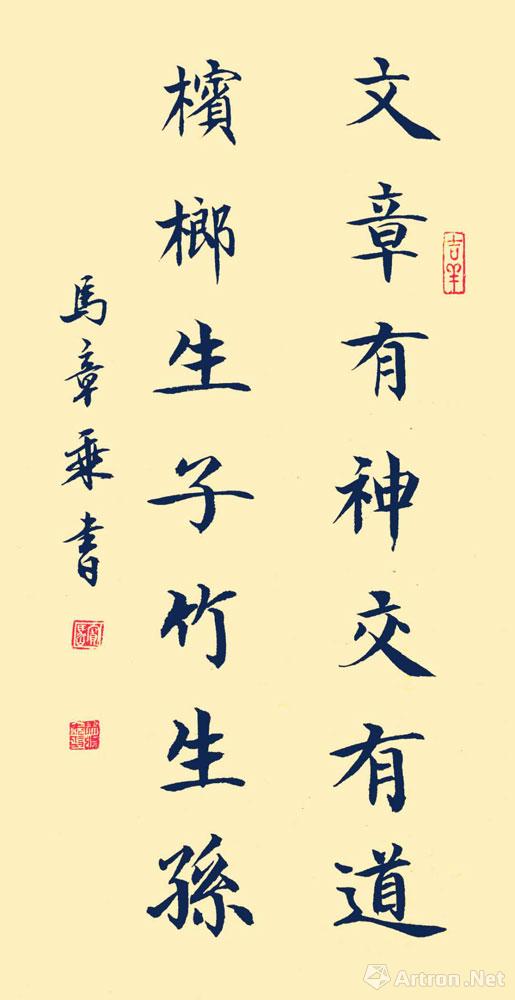 文章有神交有道
檳榔生子竹生孫
馬章乘書
吉羊
Artron.Net